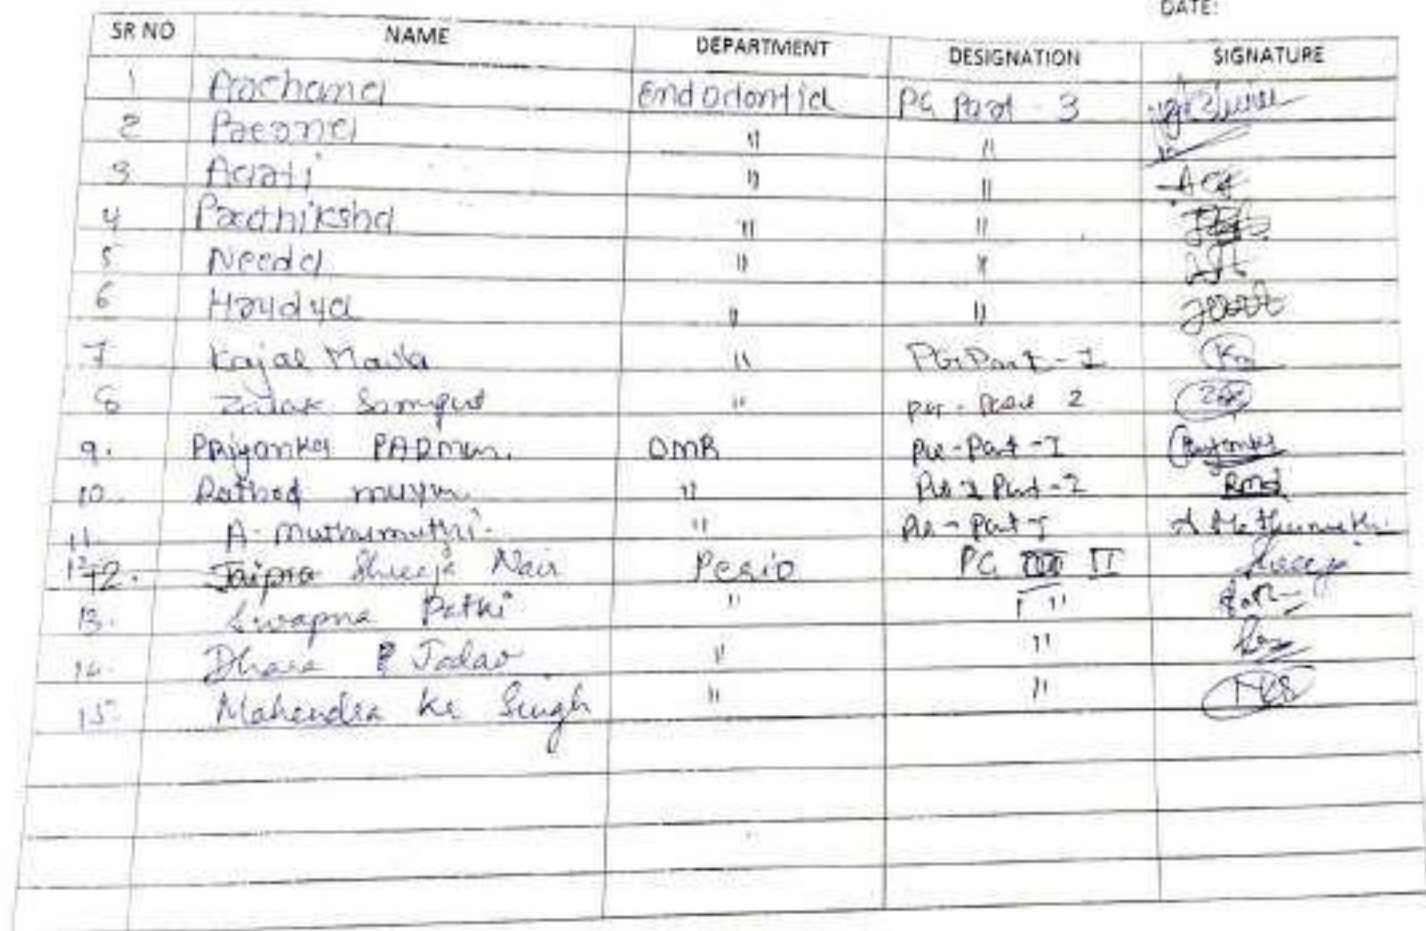 DATE:
SR NO NAME DEPARTMENT DESIGNATION SIGNATURE
1 Archana Endodontia PG Part - 3
2 Prerna " "
3 Aarti " "
4 Pradhiksha " "
5 Needa " "
6 Hrudya " "
7 Kajal Mavla " PG Part - I
8 Zalak " 2
9. Priyanka PARMAR. OMR PG - Part - I Priyanka
10. Rathod " Part - 2 RMD
11. A. Muthumuthi. " PG - Part - I
12. Jaipra Shreeja Nair Perio PG III II Sreeja
13. Swapna Patki " "
14. Dhara P Jadav " "
15. Mahendra Kr Singh " " MKS